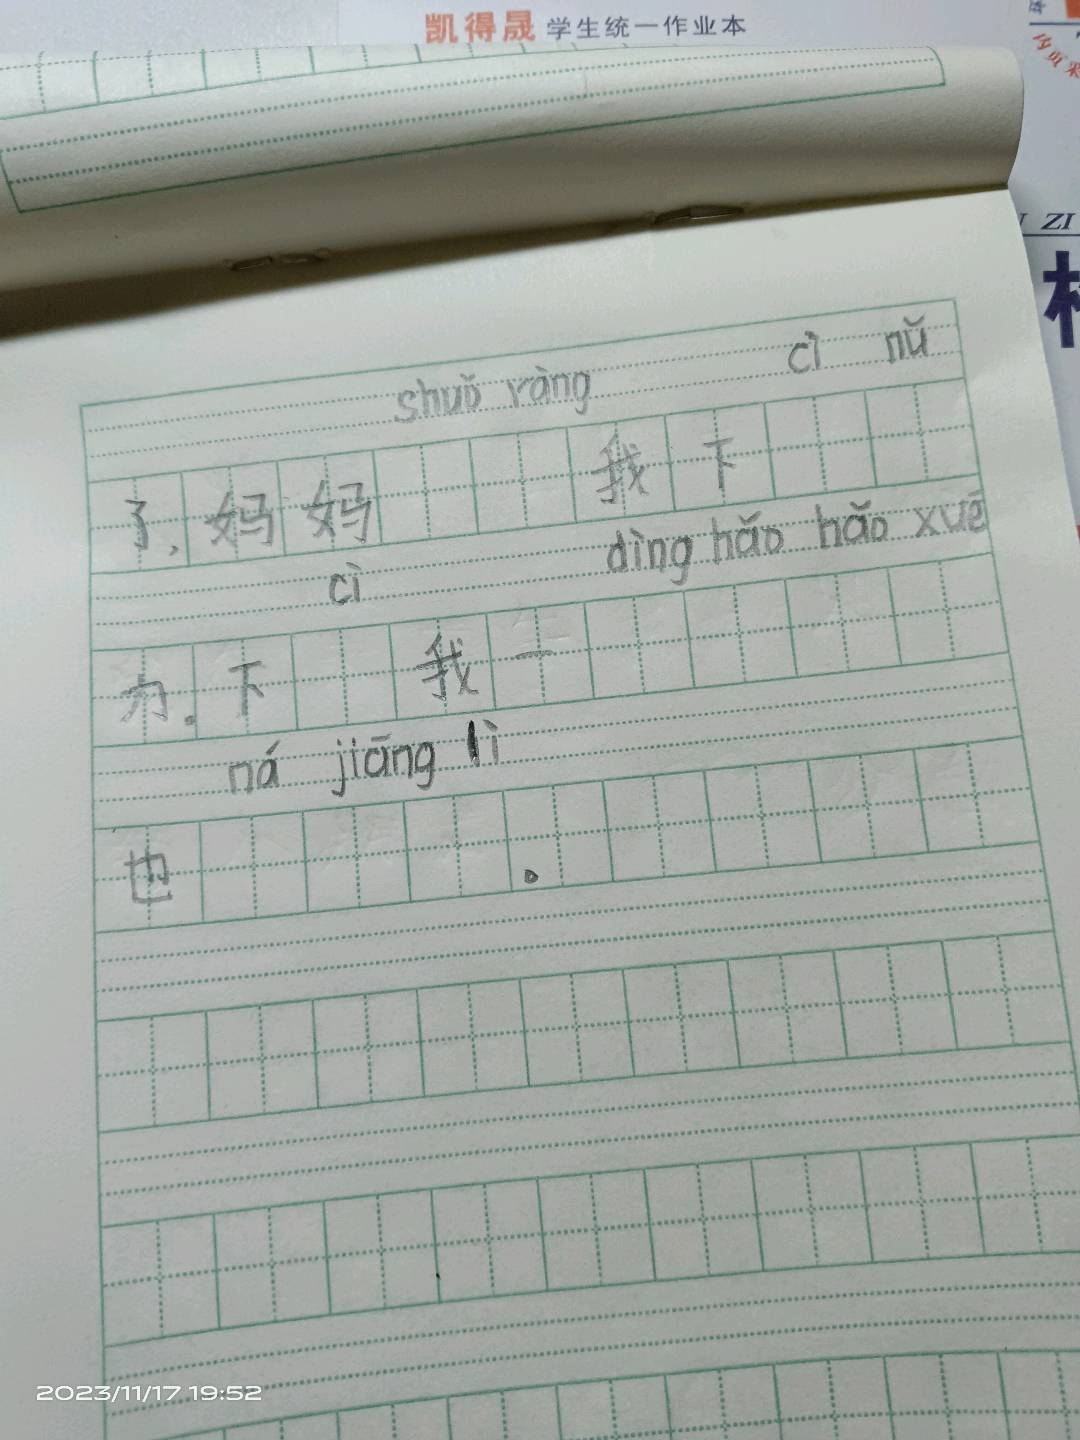 凯得晟 学生统一作业本
ZI
shuǒ ràng cì nǔ
了,妈妈 我下
cì dìng hǎo hǎo xué
力.下 我一
ná jiāng lì
也 。
2023/11/17 19:52